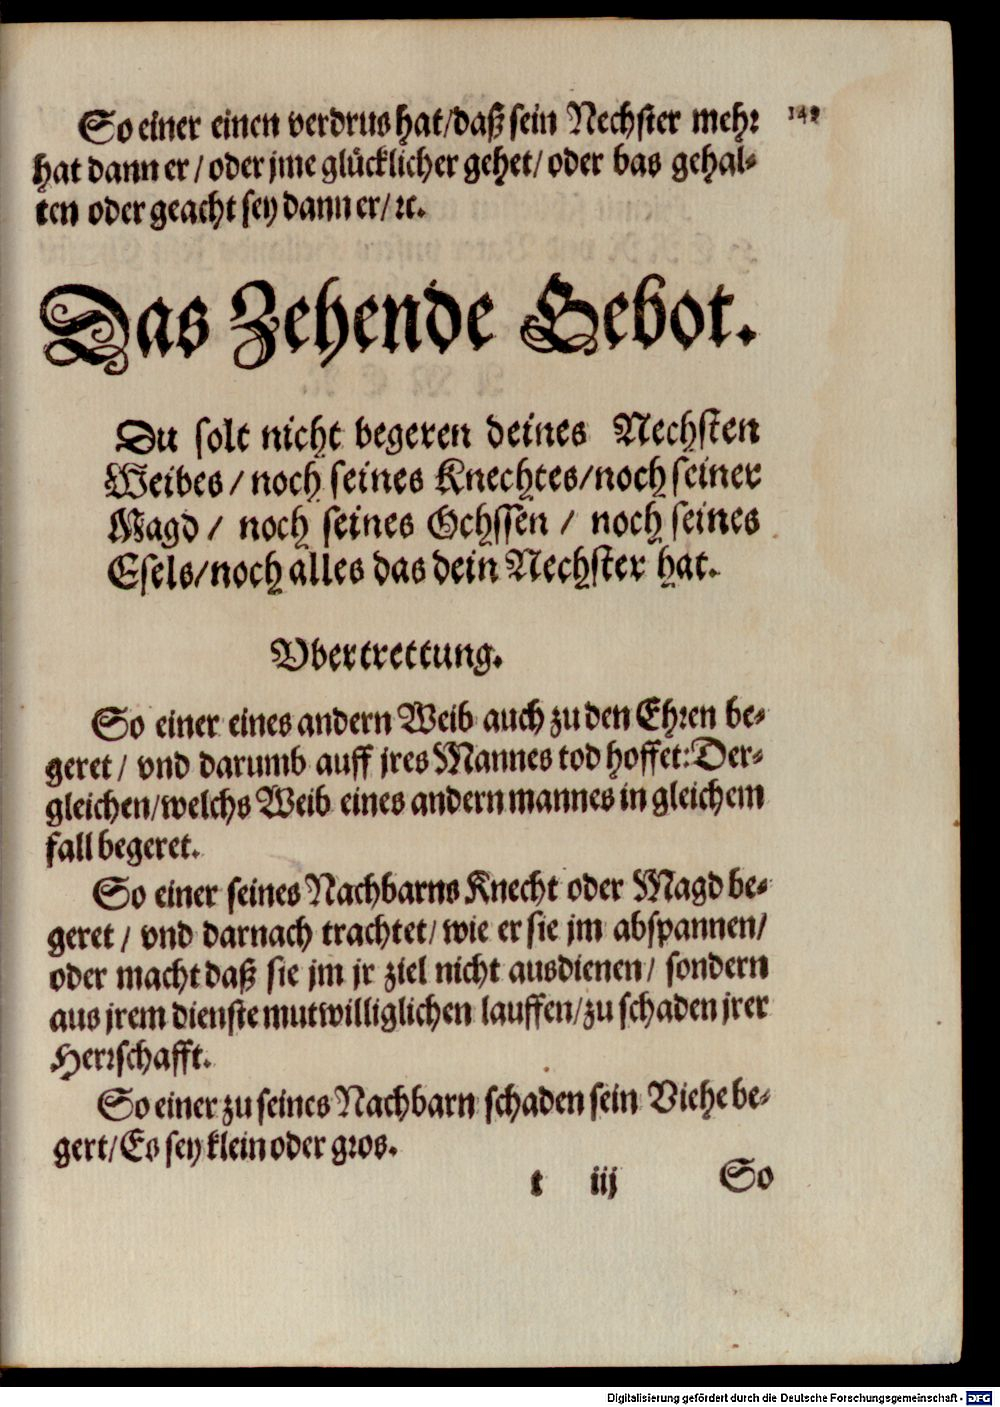 So einer einen verdrus hat/daß sein Nechster mehr
hat dann er/oder jme glücklicher gehet/oder bas gehal-
ten oder geacht sey dann er/ꝛc.
Das Zehende Gebot.
Du solt nicht begeren deines Nechsten
Weibes/noch seines Knechtes/noch seiner
Magd/noch seines Ochssen/noch seines
Esels/noch alles das dein Nechster hat.
Vbertrettung.
So einer eines andern Weib auch zu den Ehren be-
geret/vnd darumb auff jres Mannes tod hoffet: Der-
gleichen/welchs Weib eines andern mannes in gleichem
fall begeret.
So einer seines Nachbarns Knecht oder Magd be-
geret/vnd darnach trachtet/wie er sie jm abspannen/
oder macht daß sie jm jr ziel nicht ausdienen/sondern
aus jrem dienste mutwilliglichen lauffen/zu schaden jrer
Herrschafft.
So einer zu seines Nachbarn schaden sein Viehe be-
gert/Es sey klein oder gros.
t iij So
Digitalisierung gefördert durch die Deutsche Forschungsgemeinschaft - DFG